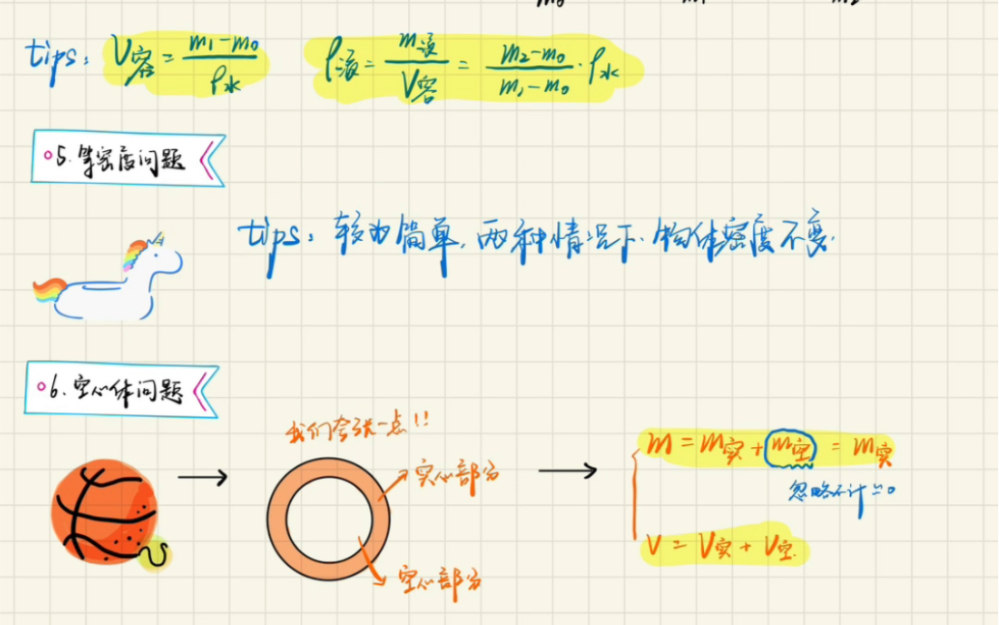 tips: V容 = (m₁-m₀)/ρ水 ρ液 = m液/V容 = (m₂-m₀)/(m₁-m₀)·ρ水
5.等密度问题
tips: 较为简单,两种情况下.物体密度不变.
6.空心体问题
我们夸张一点!!
实心部分
空心部分
m = m实 + m空 = m实
忽略不计=0
V = V实 + V空